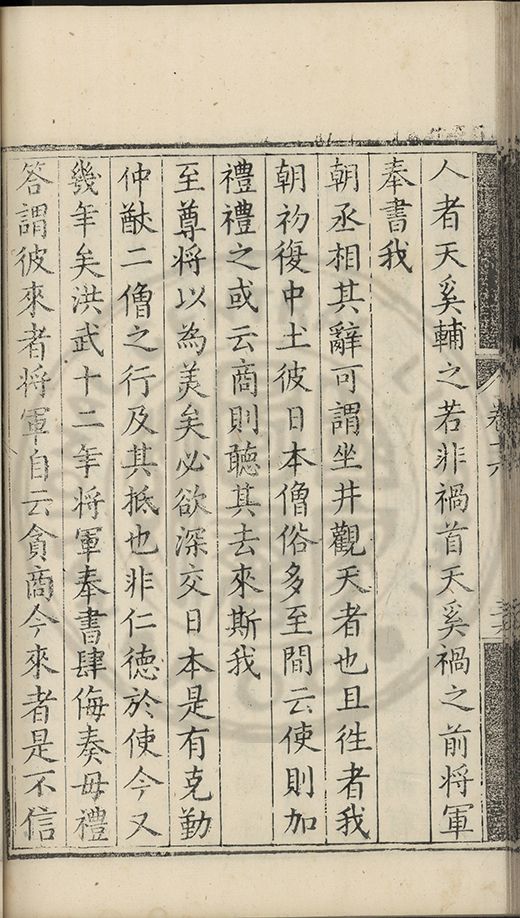 人者天奚輔之若非禍首天奚禍之前將軍
奉書我
朝丞相其辭可謂坐井觀天者也且徃者我
朝初復中土彼日本僧俗多至間云使則加
禮禮之或云商則聽其去來斯我
至尊將以為美矣必欲深交日本是有克勤
仲猷二僧之行及其抵也非仁德於使今又
幾年矣洪武十二年將軍奉書肆侮奏毋禮
答謂彼來者將軍自云貪商今來者是不信
卷十六